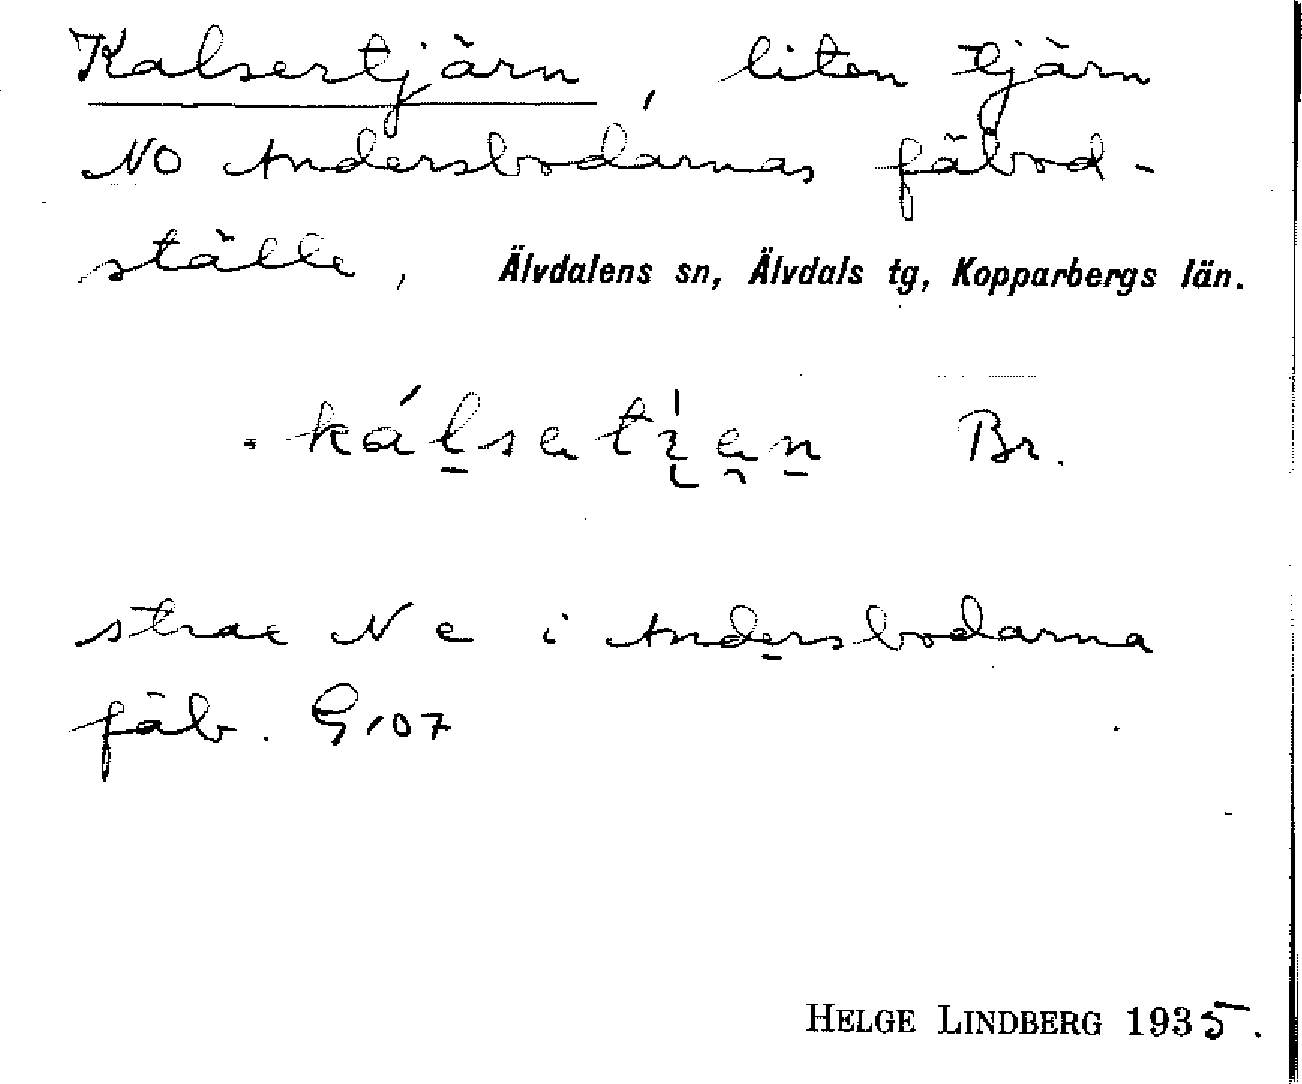 Kalsertjärn, liten tjärn
NO Andersbodarnas fäbod-
ställe, Älvdalens sn, Älvdals tg, Kopparbergs län.
Br.
strax N e i Andersbodarna
fäb. G 107
HELGE LINDBERG 1935.